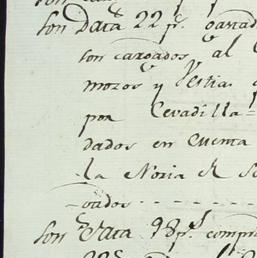 Son Data 22 p.s gastad
son cargados al
mozos y Vestia
por Cevadilla
dados en cuenta
la Noria el S
gados
Son Data 98 p.s compr